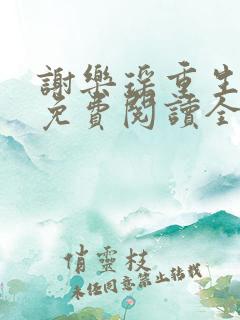 謝樂瑤重生
免費閱讀全
俏靈枝
未经同意禁止转载